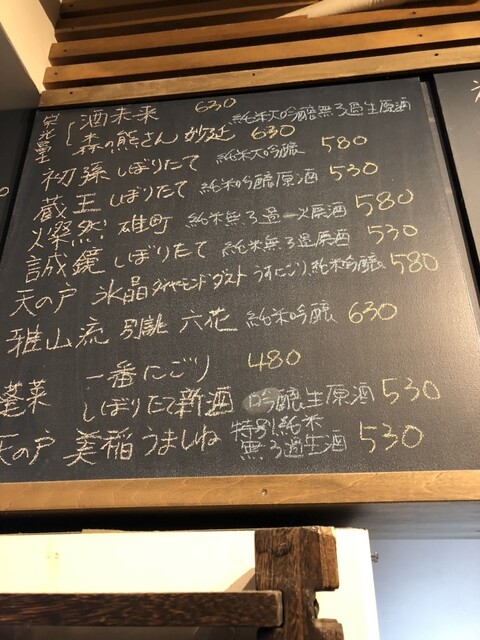 栄光冨士 酒未来 630 純米大吟醸無ろ過生原酒
森の熊さん 妙延 630 純米大吟醸
初孫 しぼりたて 580
蔵王 しぼりたて 純米吟醸原酒 530
燦然 雄町 純米無ろ過一火原酒 580
誠鏡 しぼりたて 純米無ろ過原酒 530
天の戸 氷晶 ダイヤモンドダスト うすにごり純米吟醸 580
雅山流 別誂 六花 純米吟醸 630
一番にごり 480
蓬莱 しぼりたて新酒 吟醸生原酒 530
天の戸 美稲 うましね 特別純米 無ろ過生酒 530